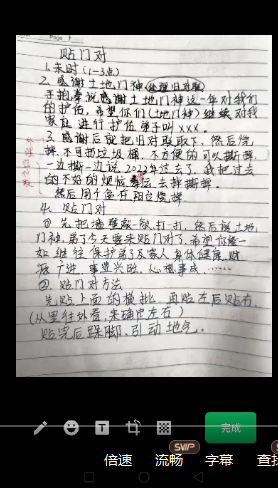 贴门对
1.未时(1-3点)
2.感谢土地门神(处理旧对联)
手抱拳说感谢土地门神这一年对我们
的护佑,希望你们(土地门神)继续对我
家庭进行护佑弟子叫xxx.
3.感谢后就把旧对联取下,然后烧
掉,不可扔垃圾桶,不方便的可以撕掉,
一边撕一边说,2022年过去了,我把过去
的不好的烦恼霉运去掉撕掉.
然后用个盆在阳台烧掉
4.贴门对
①先把墙壁敲一敲,打一打,然后说土地
门神,弟子今天要来贴门对了,希望你能一
如继往保护弟子及家人身体健康,财
源广进,事业兴旺,心想事成……
②贴门对方法
先贴上面的横批,再贴左后贴右,
(从里往外看,来确定左右)
贴完后跺脚,引动地气.
完成
SVIP
SVIP
倍速 流畅 字幕 查找